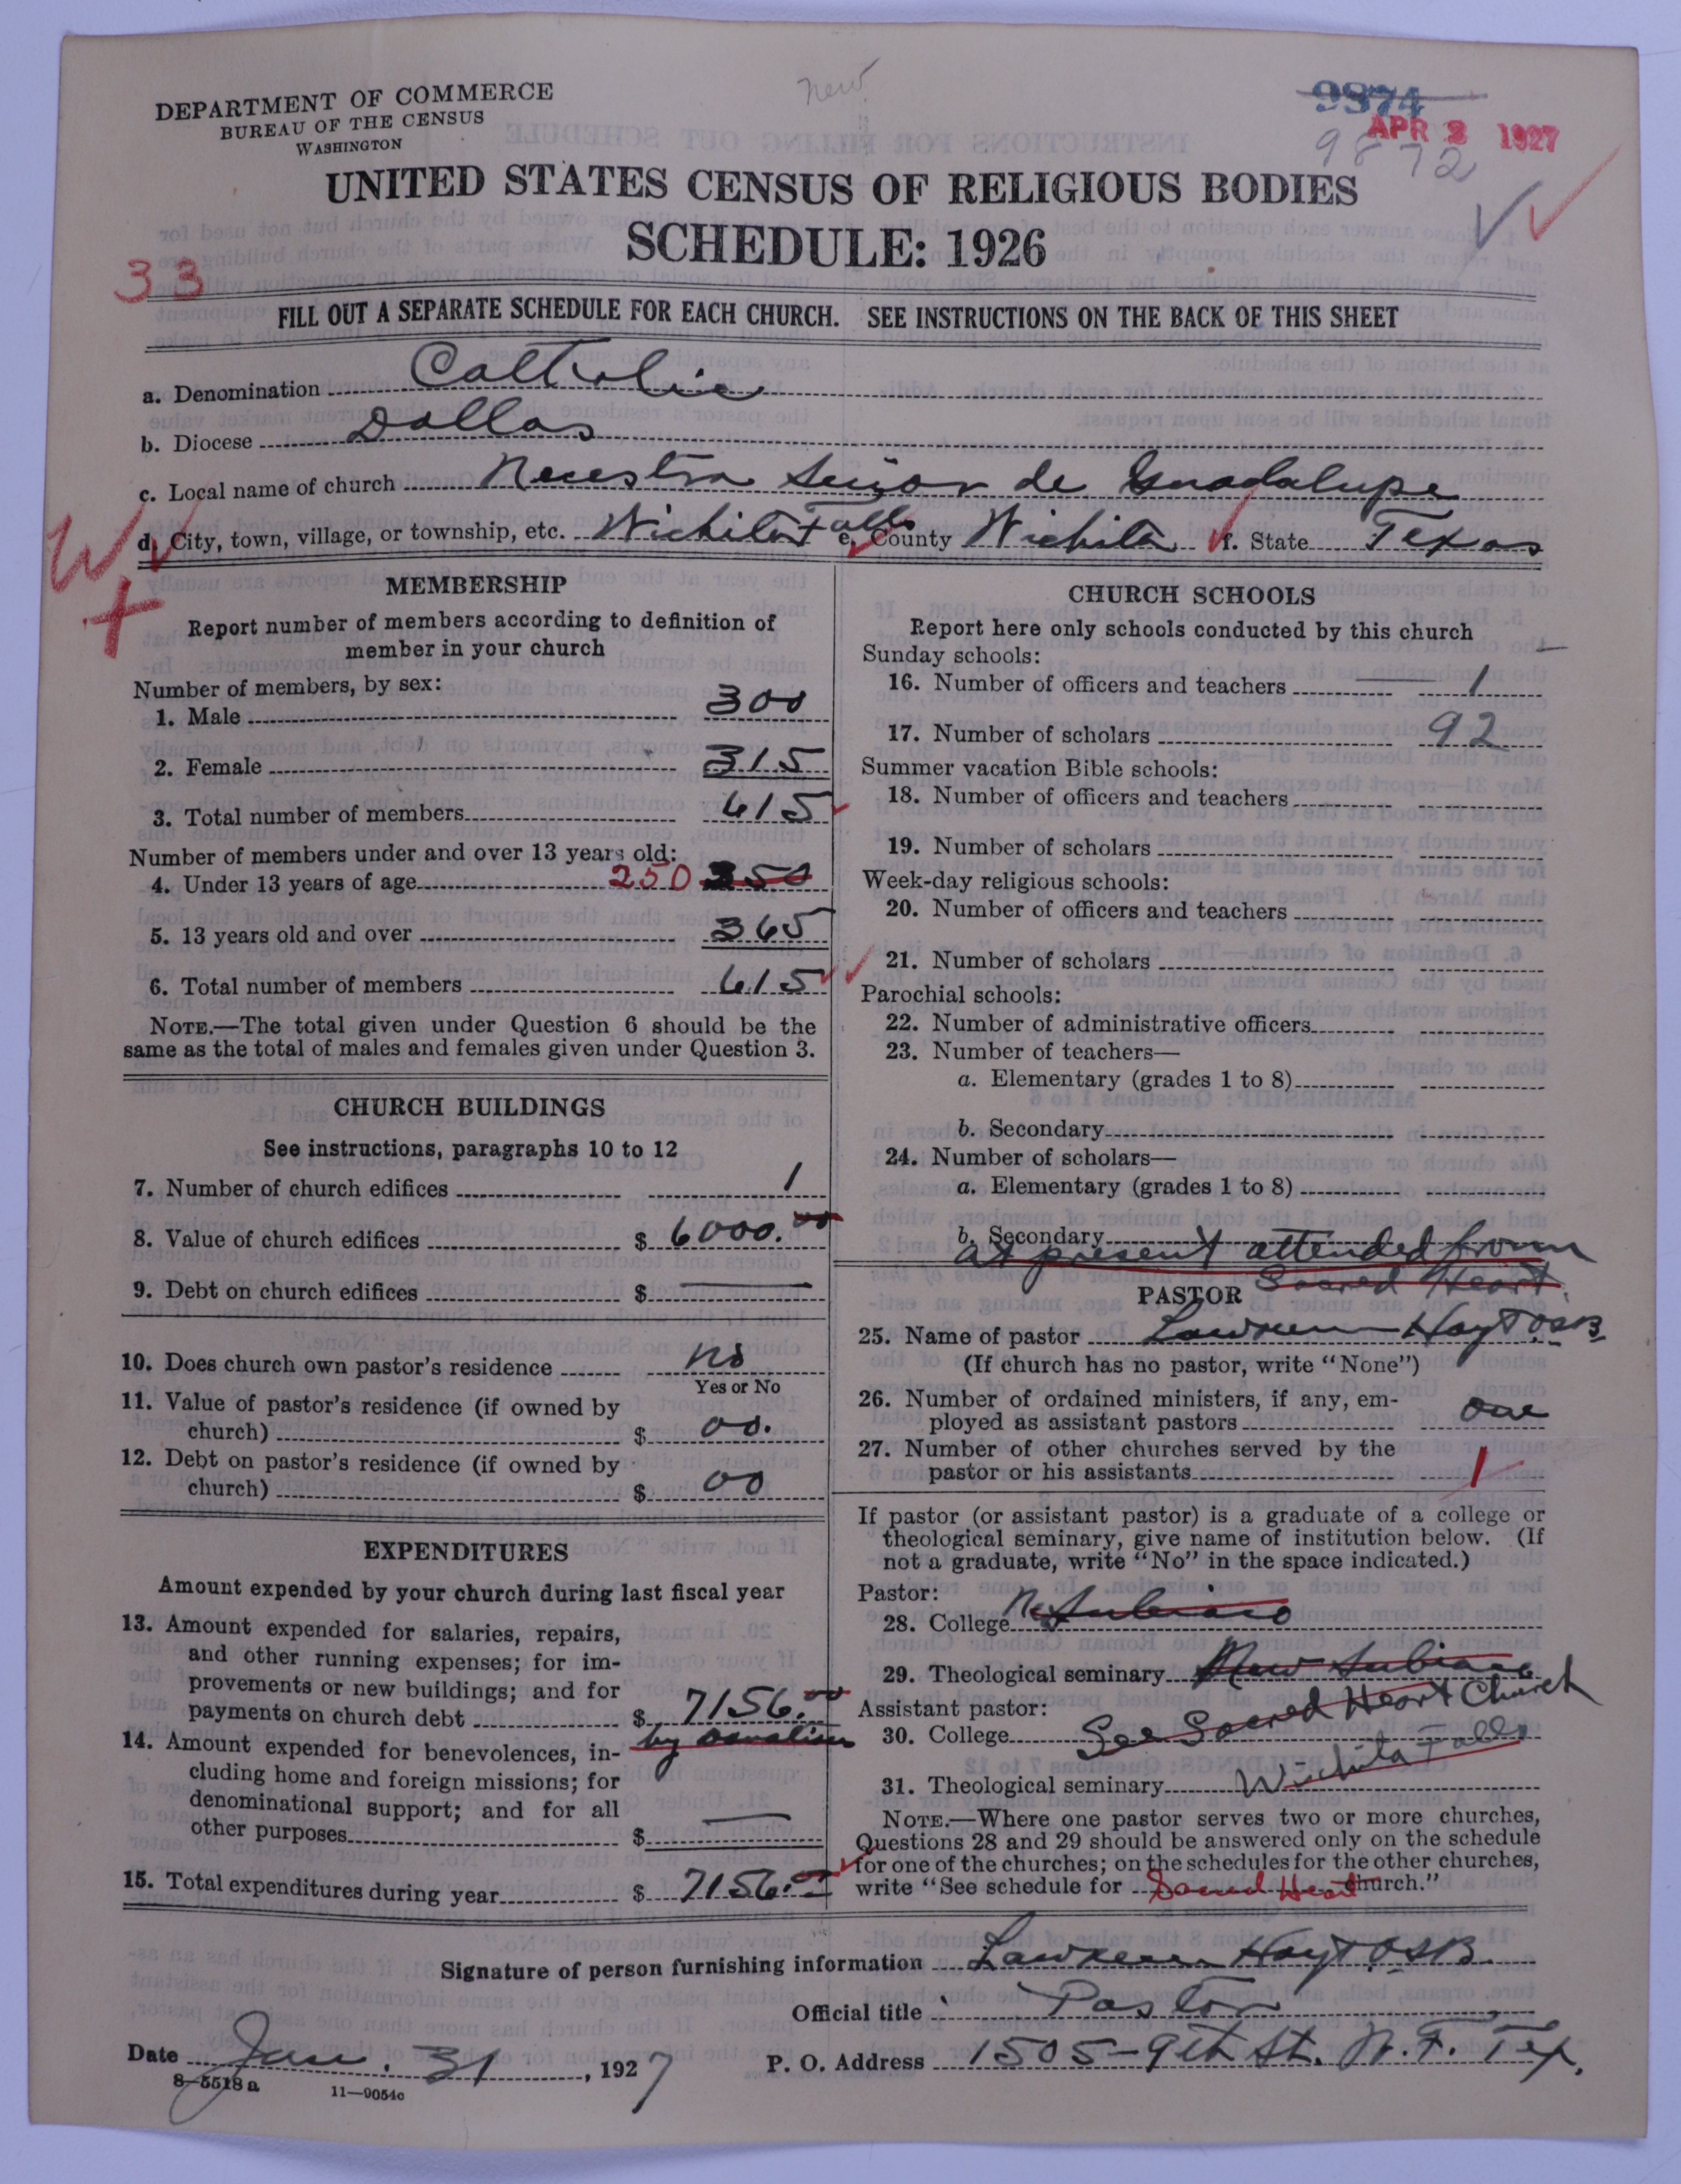 new
DEPARTMENT OF COMMERCE
BUREAU OF THE CENSUS
WASHINGTON
9874
APR 2 1927
9872
UNITED STATES CENSUS OF RELIGIOUS BODIES
SCHEDULE: 1926
33
FILL OUT A SEPARATE SCHEDULE FOR EACH CHURCH. SEE INSTRUCTIONS ON THE BACK OF THIS SHEET
a. Denomination Catholic
b. Diocese Dallas
c. Local name of church Neuestra Señora de Guadalupe
d. City, town, village, or township, etc. Wichita Falls e. County Wichita f. State Texas
W
MEMBERSHIP
Report number of members according to definition of
member in your church
Number of members, by sex:
1. Male 300
2. Female 315
3. Total number of members 615
Number of members under and over 13 years old:
4. Under 13 years of age 250 350
5. 13 years old and over 365
6. Total number of members 615
NOTE.—The total given under Question 6 should be the
same as the total of males and females given under Question 3.
CHURCH BUILDINGS
See instructions, paragraphs 10 to 12
7. Number of church edifices 1
8. Value of church edifices $ 6000.00
9. Debt on church edifices $ —
10. Does church own pastor's residence no
Yes or No
11. Value of pastor's residence (if owned by
church) $ 00.
12. Debt on pastor's residence (if owned by
church) $ 00
EXPENDITURES
Amount expended by your church during last fiscal year
13. Amount expended for salaries, repairs,
and other running expenses; for im-
provements or new buildings; and for
payments on church debt $ 7156.00
by donation
14. Amount expended for benevolences, in-
cluding home and foreign missions; for
denominational support; and for all
other purposes $ —
15. Total expenditures during year $ 7156.00
CHURCH SCHOOLS
Report here only schools conducted by this church
Sunday schools:
16. Number of officers and teachers 1
17. Number of scholars 92
Summer vacation Bible schools:
18. Number of officers and teachers
19. Number of scholars
Week-day religious schools:
20. Number of officers and teachers
21. Number of scholars
Parochial schools:
22. Number of administrative officers
23. Number of teachers—
a. Elementary (grades 1 to 8)
b. Secondary
24. Number of scholars—
a. Elementary (grades 1 to 8)
b. Secondary
at present attended from
Sacred Heart.
PASTOR
25. Name of pastor Lawrence Hoyt O.S.B.
(If church has no pastor, write "None")
26. Number of ordained ministers, if any, em-
ployed as assistant pastors one
27. Number of other churches served by the
pastor or his assistants 1
If pastor (or assistant pastor) is a graduate of a college or
theological seminary, give name of institution below. (If
not a graduate, write "No" in the space indicated.)
Pastor:
28. College N. Subiaco
29. Theological seminary New Subiaco
Assistant pastor:
30. College See Sacred Heart Church
31. Theological seminary Wichita Falls
NOTE.—Where one pastor serves two or more churches,
Questions 28 and 29 should be answered only on the schedule
for one of the churches; on the schedules for the other churches,
write "See schedule for Sacred Heart church."
Signature of person furnishing information Lawrence Hoyt O.S.B.
Official title Pastor
Date Jan. 31, 1927
P. O. Address 1505-9th St. W.F. Tex.
8-5518 a
11—9054c